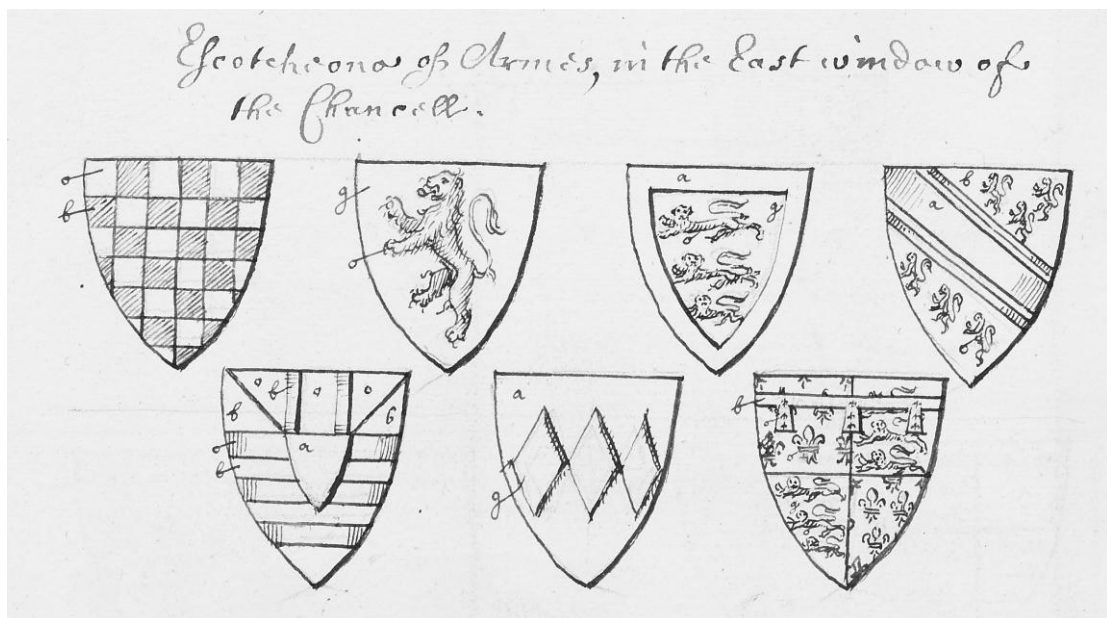 Escotcheons of Armes, in the East window of
the Chancell.
o
b
g
o
a
g
b
a
o
b
b
a
o
b
o
b
a
a
g
b